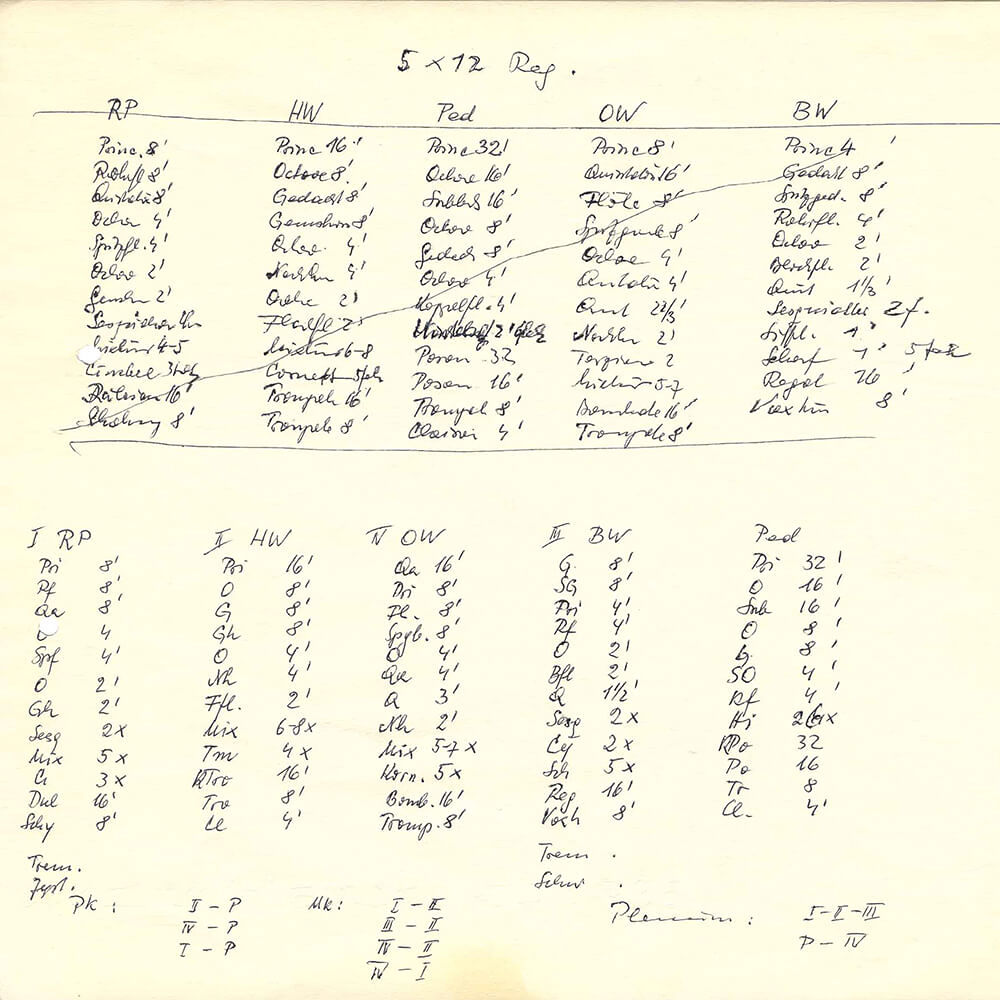 5 x 12 Reg.
RP HW Ped OW BW
Princ. 8' Princ 16' Princ 32' Princ 8' Princ 4'
Rohrfl 8' Octave 8' Octave 16' Quintatön 16' Gedackt 8'
Quintatön 8' Gedackt 8' Subbass 16' Flöte 8' Spitzged. 8'
Octav 4' Gemshorn 8' Octave 8' Spitzgamb 8' Rohrfl. 4'
Spitzfl. 4' Octav. 4' Gedack 8' Octave 4' Octave 2'
Octav 2' Nachthn 4' Octav 4' Quintatön 4' Blockfl. 2'
Gemshn 2' Octave 2' Koppelfl. 4' Quint 2 2/3' Quint 1 1/3'
Flachfl 2' Nachthn 2' Sesquialter 2 f.
Mixtur 4-5 Mixtur 6-8 Posaun 32 Terzian 2 Scharf 1' 5 fach
Cimbel 3 fach Cornett 5 fach Posaun 16' Mixtur 5-7 Regal 16'
16' Trompete 16' Trompete 8' Bombarde 16' Vox hum 8'
8' Trompete 8' Clairon 4' Trompete 8'
I RP II HW IV OW III BW Ped
Pri 8' Pri 16' Qa 16' G 8' Pri 32'
Rf 8' O 8' Pri 8' SG 8' O 16'
Qa 8' G 8' Fl. 8' Pri 4' Sub 16'
4 Gh 8' Spgb. 8' Rf 4' O 8'
Spf 4' O 4' O 4' O 2' G. 8'
O 2' Nh 4' Qa 4' Bfl 2' SO 4'
Gh 2' Ffl. 2' Q 3' Q 1 1/2' Rf 4'
Sesq 2x Mix 6-8x Nh 2' Sesq 2x Hi
Mix 5x Tm 4x Mix 5-7x Cy 2x Po 32
Ci 3x Tro 16' Korn. 5x Sch 5x Po 16
Dul 16' Tro 8' Bomb. 16' Reg 16' Tr 8
Schy 8' Cl 4' Tromp. 8' Voxh 8' Cl. 4'
Trem. Trem .
Schw .
PK: II - P MK: I - II Plenum: I-II-III
IV - P III - II P - IV
I - P IV - II
IV - I